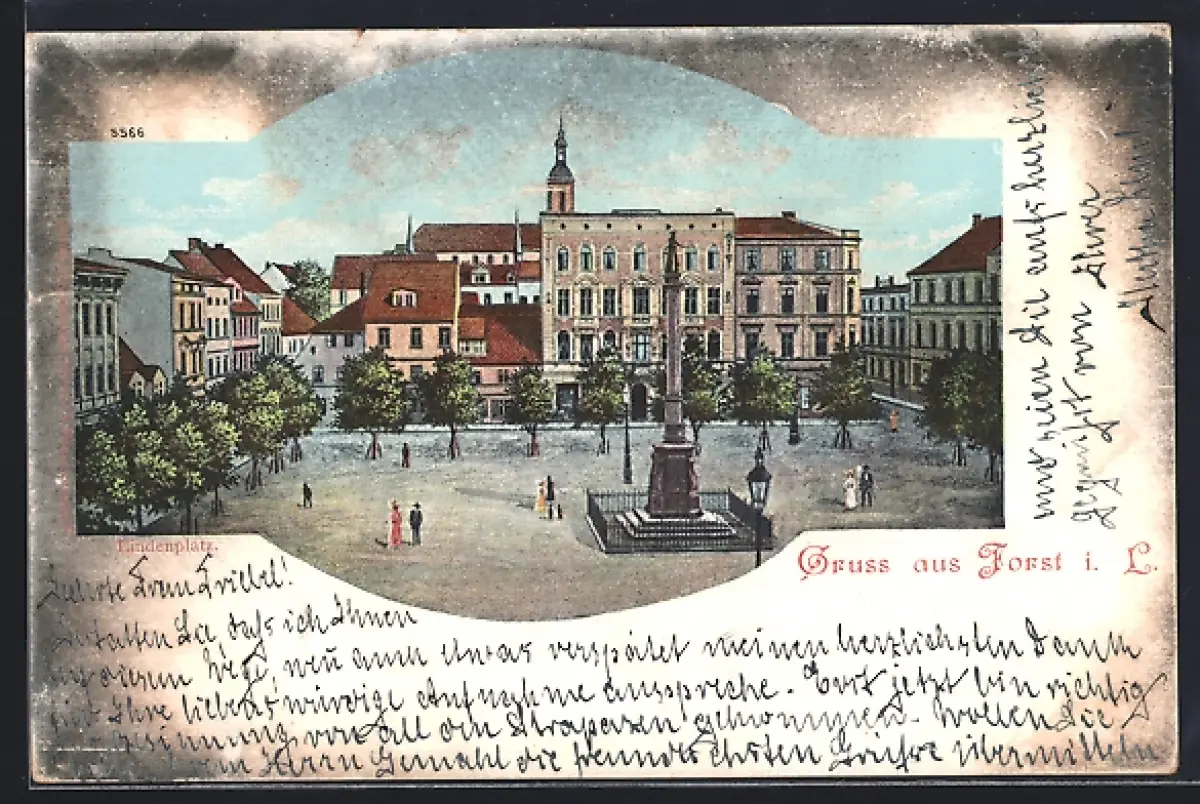 5566
Lindenplatz.
Gruss aus Forst i. L.
Geehrte Frau
Gestatten Sie, daß ich Ihnen
auf diesem Wege, wenn auch etwas verspätet meinen herzlichsten Dank
für Ihre liebenswürdige Aufnahme ausspreche. Erst jetzt bin richtig
von all den Strapazen gewonnen. Wollen Sie
Herrn Gemahl die freundlichsten Grüße übermitteln
und seien Sie aufs herzlichste
gegrüßt von Ihrer